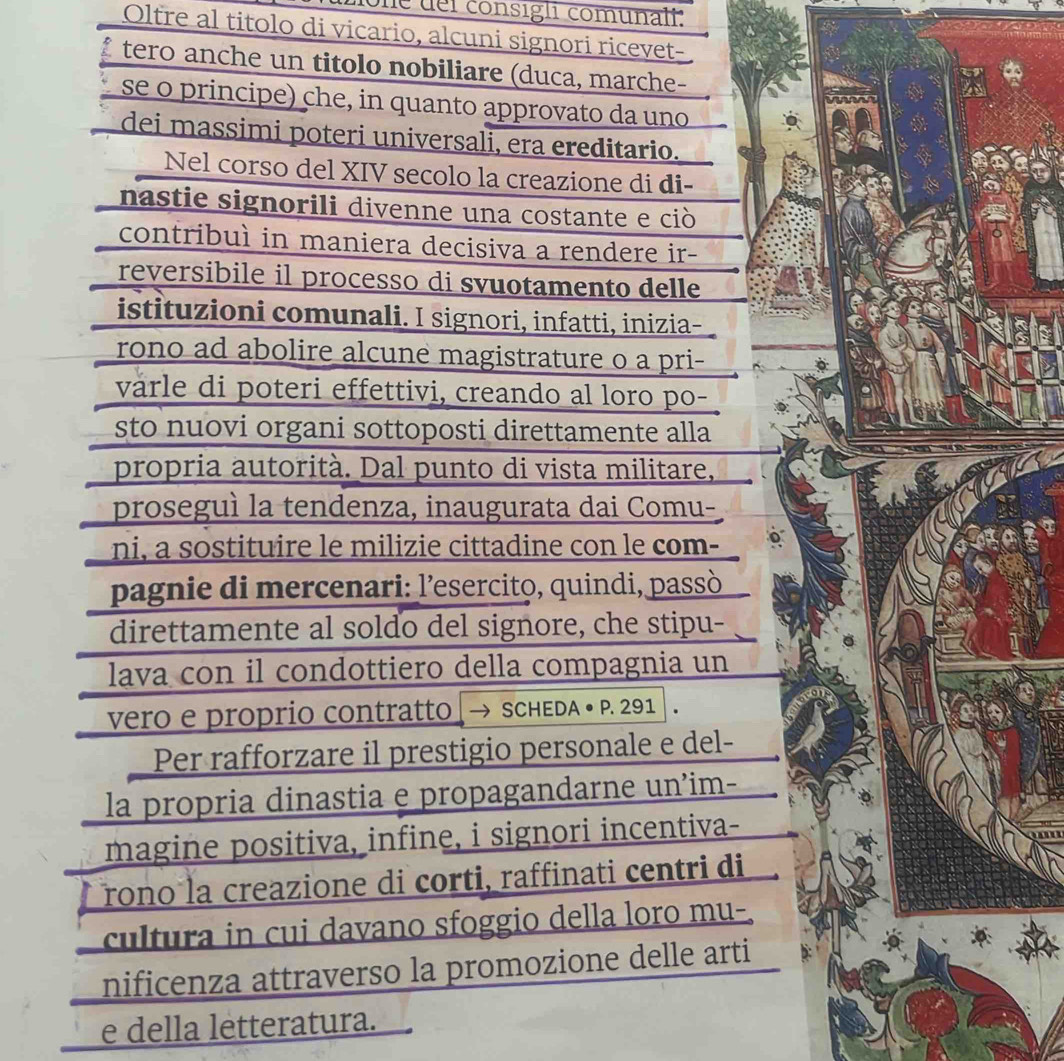 dei consigli comunali.
Oltre al titolo di vicario, alcuni signori ricevet-
tero anche un titolo nobiliare (duca, marche-
se o principe) che, in quanto approvato da uno
dei massimi poteri universali, era ereditario.
Nel corso del XIV secolo la creazione di di-
nastie signorili divenne una costante e ciò
contribuì in maniera decisiva a rendere ir-
reversibile il processo di svuotamento delle
istituzioni comunali. I signori, infatti, inizia-
rono ad abolire alcune magistrature o a pri-
varle di poteri effettivi, creando al loro po-
sto nuovi organi sottoposti direttamente alla
propria autorità. Dal punto di vista militare,
proseguì la tendenza, inaugurata dai Comu-
ni, a sostituire le milizie cittadine con le com-
pagnie di mercenari: l’esercito, quindi, passò
direttamente al soldo del signore, che stipu-
lava con il condottiero della compagnia un
vero e proprio contratto → SCHEDA • P. 291 .
Per rafforzare il prestigio personale e del-
la propria dinastia e propagandarne un’im-
magine positiva, infine, i signori incentiva-
rono la creazione di corti, raffinati centri di
cultura in cui davano sfoggio della loro mu-
nificenza attraverso la promozione delle arti
e della letteratura.